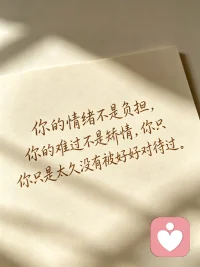 你的情绪不是负担，
你的难过不是矫情，你只
你只是太久没有被好好对待过。